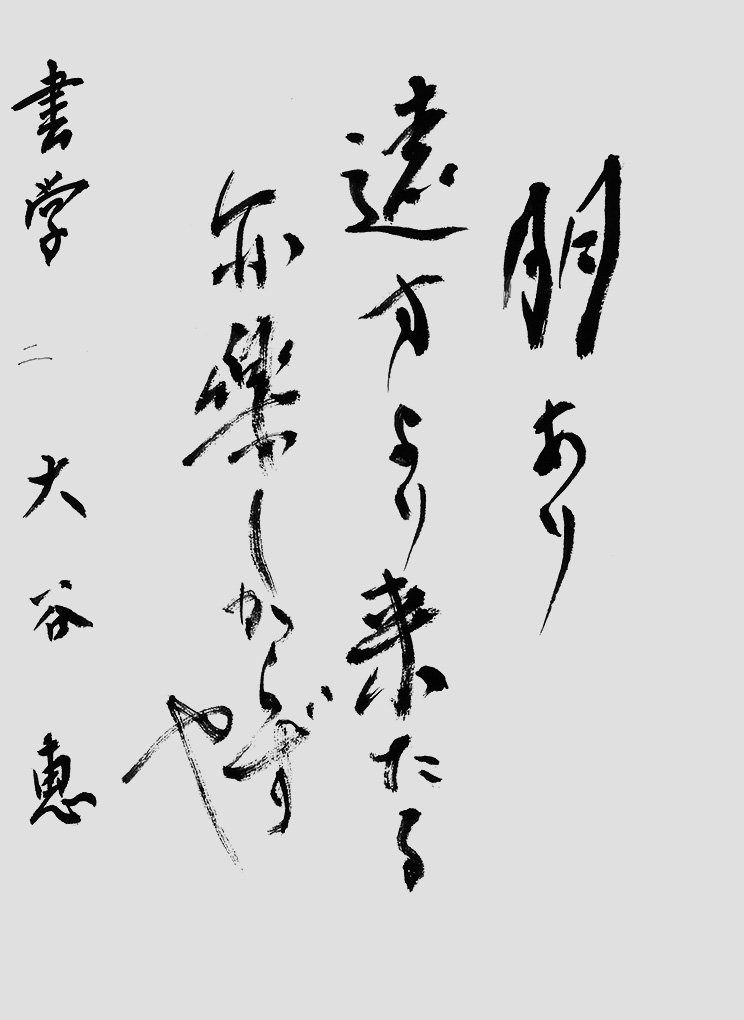 朋あり
遠方より来たる
亦樂しからずや
書学 二 大谷 恵